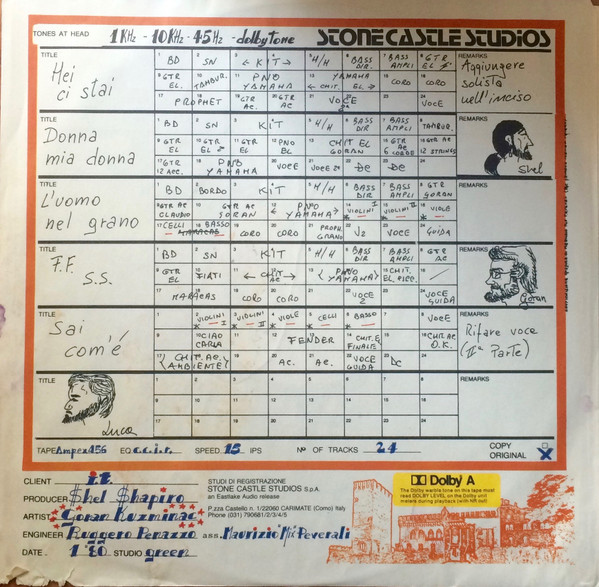 TONES AT HEAD 1 KHz - 10 KHz - 45 Hz - dolby tone STONE CASTLE STUDIOS
TITLE Hei ci stai
1 BD 2 SN 3 ← KIT → 4 5 H/H 6 BASS DIR. 7 BASS AMPLI 8 GTR EL
9 GTR EL. 10 TAMBUR. 11 PNO YAMAHA 12 13 YAMAHA ← CHIT. EL → 14 15 CORO 16 CORO
17 PROPHET 18 19 GTR AC. 20 GTR AC 21 VOCE 22 23 24 VOCE
REMARKS Aggiungere solista nell'inciso
TITLE Donna mia donna
BD SN KIT H/H BASS DIR BASS AMPLI TAMBUR.
GTR EL GTR EL 2ª GTR EL PNO BL CHIT EL GORAN GTR AC 6 CORDE GTR AC 12 STRINGS
GTR AC 12 ACC. PNO YAMAHA VOCE VOCE 2ª
REMARKS Shel
TITLE L'uomo nel grano
BD BORDO KIT H/H BASS DIR BASS AMPLI GTR GORAN
GTR AC CLAUDIO GTR AC GORAN < PNO YAMAHA > VIOLINI I VIOLINI II VIOLE
CELLI BASSO MARACAS CORO CORO PROPH. GRANO V2 VOCE GUIDA
REMARKS
TITLE F.F. S.S.
BD SN KIT H/H BASS DIR BASS AMPLI GTR AC
GTR EL FIATI ← CHIT AC → < PNO YAMAHA > CHIT. EL.
MARACAS CORO CORO VOCE 2 VOCE GUIDA
REMARKS Goran
TITLE Sai com'é
VIOLINI I VIOLINI II VIOLE CELLI BASSO VOCE
CIAO CARLA FENDER CHIT. EL FINALE CHIT. AC O.K.
(CHIT. AC. AMBIENTE) AC. AC. VOCE GUIDA
REMARKS Rifare voce (IIª Parte)
TITLE Luca
1 2 3 4 5 6 7 8
9 10 11 12 13 14 15 16
17 18 19 20 21 22 23 24
REMARKS
TAPE Ampex 456 EQ c.c.i.r. SPEED 15 IPS Nº OF TRACKS 24 COPY
ORIGINAL X
CLIENT it
PRODUCER Shel Shapiro
ARTIST Goran Kuzminac
ENGINEER Ruggero Penazzo ass. Maurizio "Mix" Peverali
DATE 1 '80 STUDIO green
STUDI DI REGISTRAZIONE
STONE CASTLE STUDIOS S.p.A.
an Eastlake Audio release
P.zza Castello n. 1/22060 CARIMATE (Como) Italy
Phone (031) 790681/2/3/4/5
Dolby A
The Dolby warble tone on this tape must
read DOLBY LEVEL on the Dolby unit
meters during playback (with NR out)